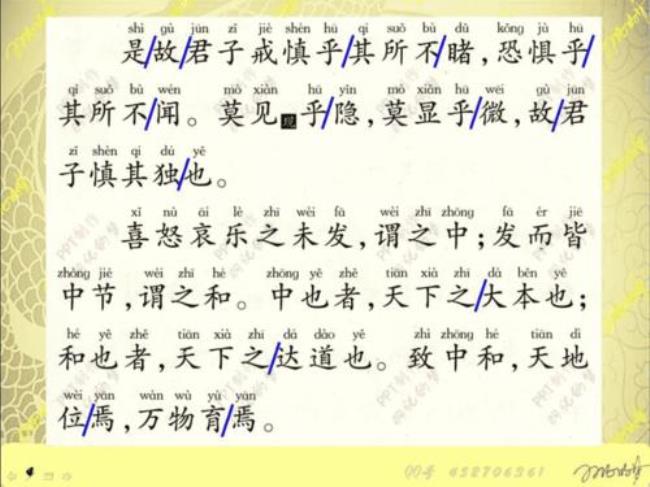 shì gù jūn zǐ jiè shèn hū qí suǒ bù dǔ kǒng jù hū
是故君子戒慎乎其所不睹,恐惧乎
qí suǒ bù wén mò xiàn hū yǐn mò xiǎn hū wēi gù jūn
其所不闻。莫见现乎隐,莫显乎微,故君
zǐ shèn qí dú yě
子慎其独也。
xǐ nù āi lè zhī wèi fā wèi zhī zhōng fā ér jiē
喜怒哀乐之未发,谓之中;发而皆
zhòng jié wèi zhī hé zhōng yě zhě tiān xià zhī dà běn yě
中节,谓之和。中也者,天下之大本也;
hé yě zhě tiān xià zhī dá dào yě zhì zhōng hé tiān dì
和也者,天下之达道也。致中和,天地
wèi yān wàn wù yù yān
位焉,万物育焉。